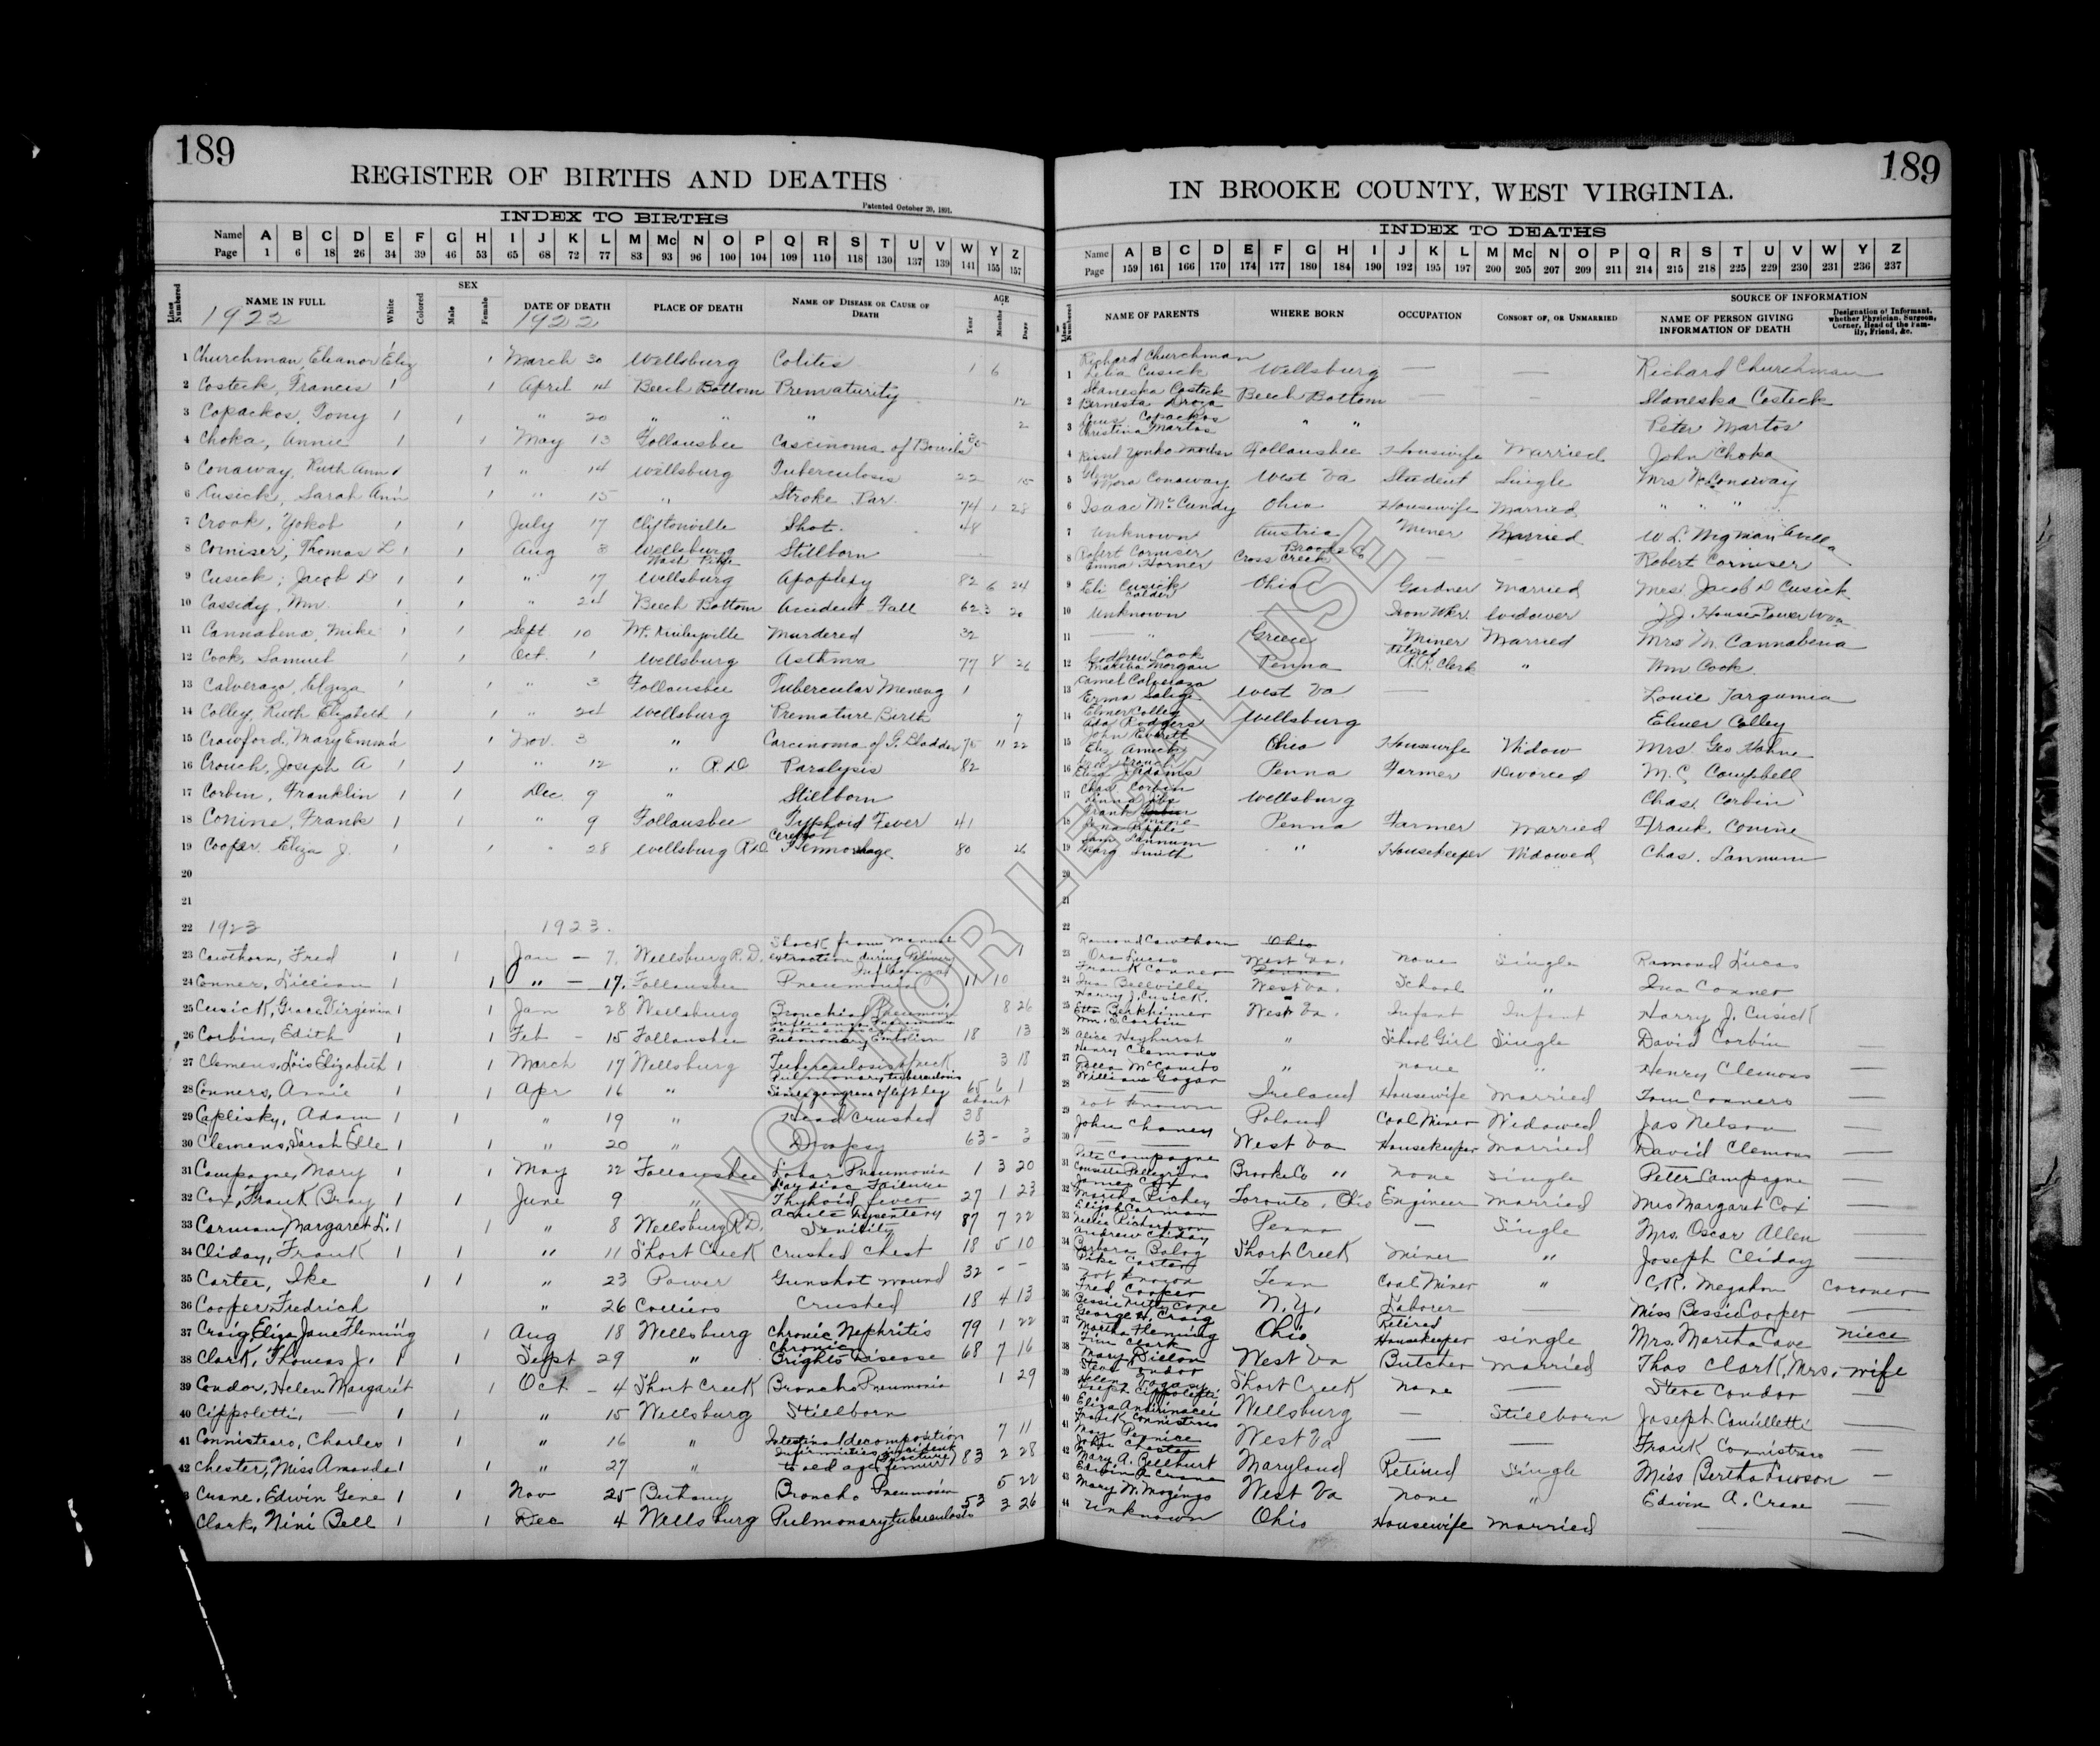 189
REGISTER OF BIRTHS AND DEATHS
Patented October 20, 1891.
INDEX TO BIRTHS
Name A B C D E F G H I J K L M Mc N O P Q R S T U V W Y Z
Page 1 6 18 26 34 39 46 53 65 68 72 77 83 93 96 100 104 109 110 118 130 137 139 141 155 157
Lines Numbered NAME IN FULL White Colored SEX Male Female DATE OF DEATH PLACE OF DEATH NAME OF DISEASE OR CAUSE OF DEATH AGE Year Months Days
1922 1922
1 Churchman, Eleanor Eliz 1 1 March 30 Wellsburg Colitis 1 6
2 Costeck, Francis 1 1 April 14 Beech Bottom Prematurity 12
3 Copackos, Tony 1 1 " 20 " " " 2
4 Choka, Annie 1 1 May 13 Follansbee Carcinoma of Bowels
5 Conaway, Ruth Ann 1 1 " 14 Wellsburg Tuberculosis 22 15
6 Cusick, Sarah Ann 1 " 15 " Stroke Par. 74 1 28
7 Crook, Yokob 1 1 July 17 Cliftonville Shot 48
8 Corniser, Thomas L 1 1 Aug 8 Wellsburg Stillborn
9 Cusick, Jacob D 1 1 " 17 Wellsburg Apoplexy 82 6 24
10 Cassidy, Wm. 1 1 " 24 Beech Bottom Accident Fall 62 3 20
11 Cannabena, Mike 1 1 Sept 10 Mt. Murdered 32
12 Cook, Samuel 1 1 Oct. 1 Wellsburg Asthma 77 8 26
13 Calverazo, Elgiza 1 1 " 3 Follansbee Tubercular Meneng 1
14 Colley, Ruth Elizabeth 1 1 " 24 Wellsburg Premature Birth 7
15 Crawford, Mary Emma 1 1 Nov. 3 " Carcinoma of G. Bladder 75 11 22
16 Crouch, Joseph A 1 1 " 12 " R.D. Paralysis 82
17 Corbin, Franklin 1 1 Dec. 9 " Stillborn
18 Conine, Frank 1 1 " 9 Follansbee Typhoid Fever 41
19 Cooper, Eliza J. 1 1 " 28 Wellsburg R.D. Hemorrhage 80 26
20
21
22 1923 1923.
23 Cawthorn, Fred 1 1 Jan - 7. Wellsburg R.D. Shock from manual extraction during Delivery 1
24 Conner, Lillian 1 1 " - 17. Follansbee Influenzal Pneumonia 11 10
25 Cusick, Grace Virginia 1 1 Jan 28 Wellsburg Bronchial Pneumonia 8 26
26 Corbin, Edith 1 1 Feb - 15 Follansbee Pulmonary Embolism 18 13
27 Clemens, Lois Elizabeth 1 1 March 17 Wellsburg Tuberculosis of neck 3 18
28 Conners, Annie 1 1 Apr 16 " Pulmonary tuberculosis Senile gangrene of left leg 65 6 1
29 Caplisky, Adam 1 1 " 19 " Head Crushed about 38
30 Clemens, Sarah Elle 1 1 " 20 " Dropsy 63 - 3
31 Campagne, Mary 1 1 May 22 Follansbee Lobar Pneumonia 1 3 20
32 Cox, Frank Bray 1 1 June 9 " Cardiac Failure Thyhoid fever 27 1 23
33 Carman, Margaret L. 1 1 " 8 Wellsburg R.D. Acute Dysentery Senility 87 7 22
34 Cliday, Frank 1 1 " 11 Short Creek Crushed Chest 18 5 10
35 Carter, Ike 1 1 " 23 Power Gunshot wound 32 - -
36 Cooper, Fredrich " 26 Colliers Crushed 18 4 13
37 Craig, Eliza Jane Fleming 1 Aug 18 Wellsburg Chronic Nephritis 79 1 22
38 Clark, Thomas J. 1 1 Sept 29 " Chronic Brights Disease 68 7 16
39 Condor, Helen Margaret 1 Oct - 4 Short Creek Broncho Pneumonia 1 29
40 Cippoletti, — 1 1 " 15 Wellsburg Stillborn
41 Connistraro, Charles 1 1 " 16 " Intestinal decomposition 7 11
42 Chester, Miss Amanda 1 1 " 27 " Infirmities incident to old age (fracture femur) 83 2 28
3 Crane, Edwin Gene 1 1 Nov 25 Bethany Broncho Pneumonia 5 22
Clark, Nini Bell 1 1 Dec 4 Wellsburg Pulmonary tuberculosis 53 3 26
189
IN BROOKE COUNTY, WEST VIRGINIA.
INDEX TO DEATHS
Name A B C D E F G H I J K L M Mc N O P Q R S T U V W Y Z
Page 159 161 166 170 174 177 180 184 190 192 195 197 200 205 207 209 211 214 215 218 225 229 230 231 236 237
Lines Numbered NAME OF PARENTS WHERE BORN OCCUPATION CONSORT OF, OR UNMARRIED SOURCE OF INFORMATION NAME OF PERSON GIVING INFORMATION OF DEATH Designation of Informant, whether Physician, Surgeon, Corner, Head of the Family, Friend, &c.
1 Richard Churchman Lelia Cusick Wellsburg — — Richard Churchman
2 Staneska Costeck Bernesta Droza Beech Bottom — — Staneska Costeck
3 Copackos Christina Martos " " Peter Martos
4 Follansbee Housewife Married John Choka
5 Glen Nora Conaway West Va Student Single Mrs N. Conaway
6 Isaac McCundy Ohio Housewife Married " " "
7 Unknown Austria Miner Married
8 Robert Corniser Emma Horner Cross Creek Brooke Co — — Robert Corniser
9 Eli Cusick Ohio Gardner Married Mrs. Jacob D Cusick
10 Unknown — Iron Wkr. Widower
11 — " Greece Miner Married Mrs M. Cannabena
12 Godfrew Cook Martha Morgan Penna Retired R.R. Clerk " Wm Cook
13 Calveraza Erma West Va — Louie Targumia
14 Elmer Colley Ada Rodgers Wellsburg Elmer Colley
15 John Everett Eliz Amick Ohio Housewife Widow Mrs. Geo Hahne
16 Crouch Eliza Adams Penna Farmer Divorced M.C. Campbell
17 Chas Corbin Wellsburg Chas. Corbin
18 Frank Conine Penna Farmer Married Frank Conine
19 Sam Lannum Marg Smith " Housekeeper Widowed Chas. Lannum
20
21
22
23 Ramond Cawthorn Ora Lucas Ohio West Va. none Single Ramond Lucas
24 Frank Conner Ina Bellville Penna West Va. School " Ina Conner
25 Harry J. Cusick. Etta Berkhimer West Va. Infant Infant Harry J. Cusick
26 Wm. S. Corbin Alice Hayhurst " School Girl Single David Corbin —
27 Henry Clemons Della McCombs " none " Henry Clemons —
28 Williams Gogan Ireland Housewife Married Tom Conners —
29 not known Poland Coal Miner Widowed Jas Nelson —
30 John Chaney — West Va Housekeeper Married David Clemons —
31 Pete Campagne Consetta Pellegrino Brooke Co " none Single Peter Campagne —
32 James Cox Martha Richey Toronto, Ohio Engineer Married Mrs Margaret Cox —
33 Elijah Carman Nellie Richardson Penna — Single Mrs. Oscar Allen —
34 Andrew Cliday Barbara Balog Short Creek Miner " Joseph Cliday —
35 Pike Carter not known Tenn Coal Miner " C.R. Megahan Coroner
36 Fred Cooper N.Y. Laborer Miss Bessie Cooper —
37 George H. Craig Martha Fleming Ohio Retired Housekeeper single Mrs. Martha Cave niece
38 Jim Clark Mary Dillon West Va Butcher Married Thos Clark, Mrs. - wife
39 Steve Condor Helen Short Creek none — Steve Condor —
40 Joseph Cippoletti Eliza Wellsburg — Stillborn Joseph —
41 Frank Connistraro Mary Pernice West Va — — Frank Connistraro —
42 John Chester Mary A. Maryland Retired Single Miss Bertha —
43 Edwin A. Crane Mary W. Mozingo West Va none " Edwin A. Crane —
44 Unknown Ohio Housewife Married — —
NOT FOR LEGAL USE